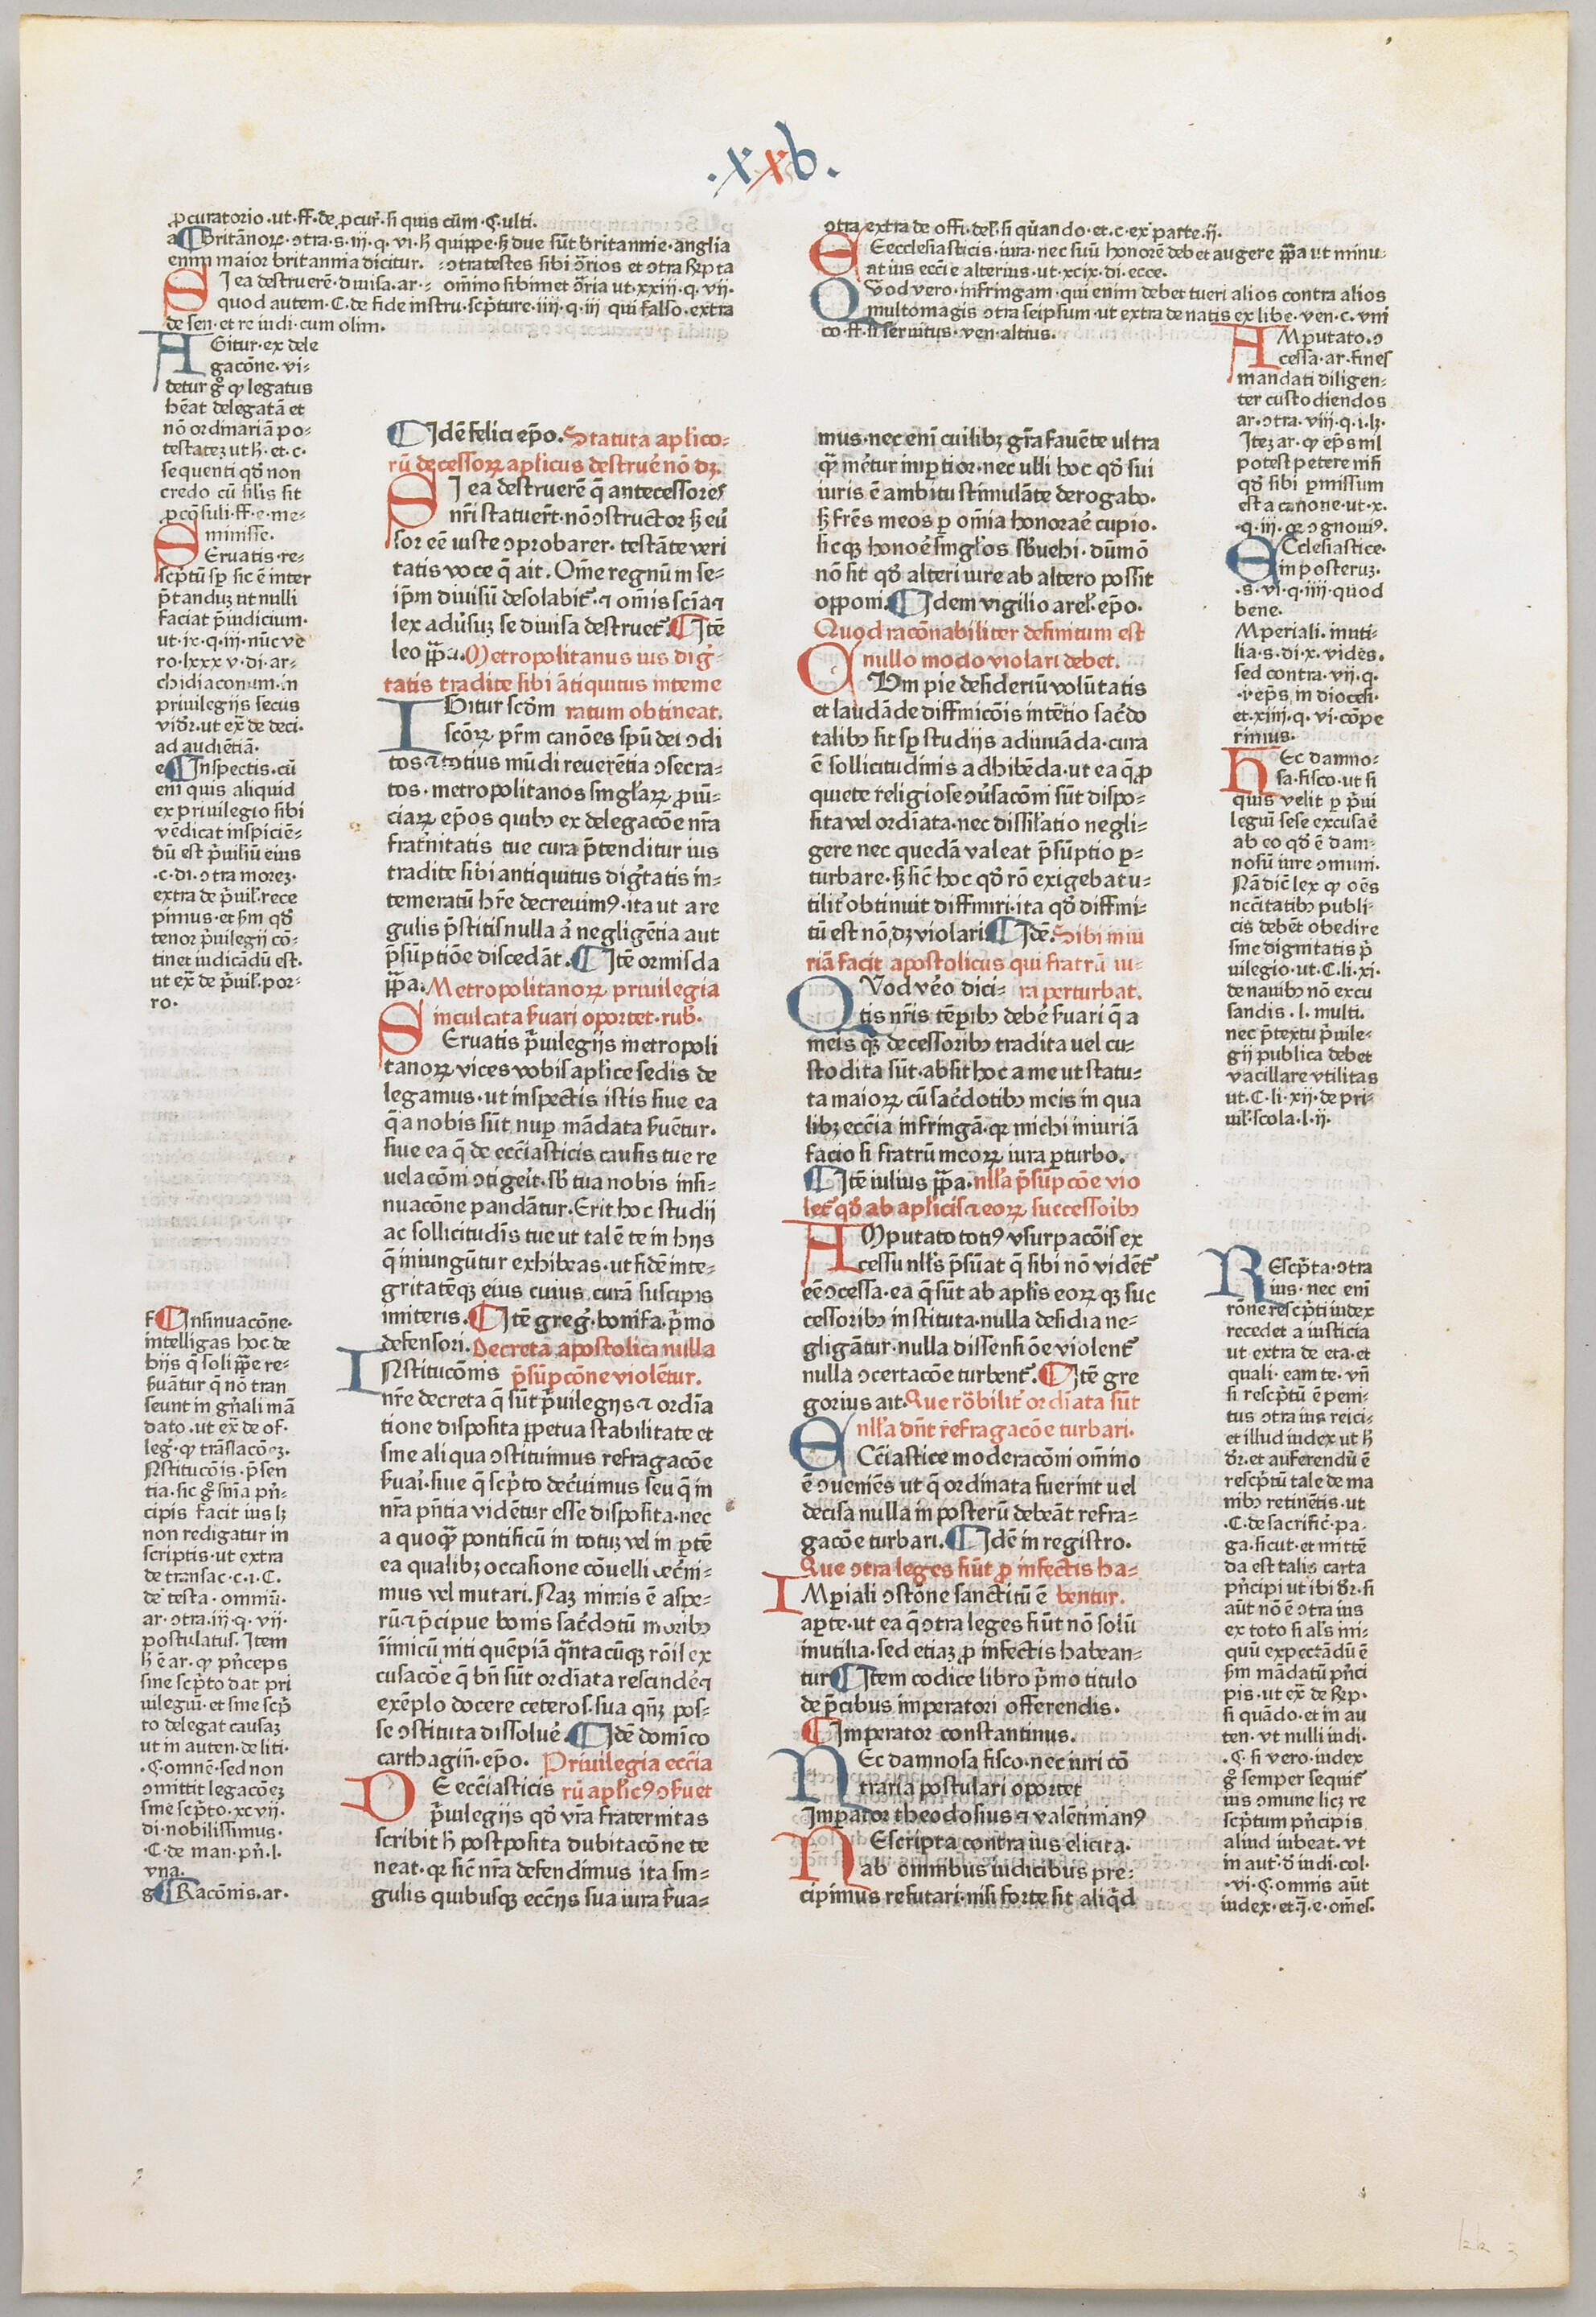 .xxb.
ꝓcuratorio·ut·ff·de ꝓcur̄·si quis cūm·§·ulti.
a Britānorꝝ·ɔtra·s·iij·q·vi·ħ quippe·ꝫ due sūt britannie·anglia
enim maior britannia dicitur.
S I ea destruerē·diuisa·ar·
quod autem·C·de fide instru·scp̄ture·iiij·q·iij qui falso·extra
de sen·et re iudi·cum olim.
ɔtra testes sibi ɔ̄rios et ɔtra
omīno sibimet ɔ̄ria ut·xxiij·q·vij·
A Gitur·ex dele
gacōne·vi=
detur gͦ ꝙ legatus
hēat delegatā et
nō ordinariā po=
testateꝫ ut ħ·et·c·
sequenti qđ non
credo cū filiis sit
ꝓcōsuli·ff·e·me=
minisse.
S Eruatis·re=
scp̄tū sꝑ sic ē inter
p̄tanduꝫ ut nulli
faciat p̄iudicium·
ut·ix·q·iij·nūc ve
ro·lxxxv·di·ar=
chidiaconum·in
priuilegijs secus
vidr̄·ut ex̄ de deci·
ad audiētiā·
e Inspectis·cū
enī quis aliquid
ex priuilegio sibi
vēdicat inspiciē=
dū est p̄uiliū eius
·c·di·ɔtra moreꝫ·
extra de p̄uil̄·rece
pimus·et ẜm qđ
tenor p̄uilegij cō=
tinet iudicādū est·
ut ex̄ de p̄uil̄·por=
ro·
f Insinuacōne·
intelligas hoc de
hijs q̄ soli ꝑꝑe re=
ẜuātur q̄ nō tran
seunt in gn̄ali mā
dato·ut ex̄ de of·
leg̃·ꝙ trāslacōeꝫ·
Nstitucōis·p̄sen
tia·sic gͦ sn̄ia pn̄=
cipis facit ius lꝫ
non redigatur in
scriptis·ut extra
de transac·c·1·C·
de testa·omniū·
ar·ɔtra·iij·q·vij·
postulatus·Item
ħ ē ar·ꝙ pn̄ceps
sine scp̄to dat pri
uilegiū·et sine scp̄
to delegat causaꝫ
ut in auten·de liti·
·§·omnē·sed non
ɔmittit legacōeꝫ
sine scp̄to·xcvij·
di·nobilissimus·
·C·de man·pn̄·l·
vna.
g Racōnis·ar·
Idē felici ep̄o. Statuta aplico=
rū decessorꝝ aplicus destrue̛ nō dꝫ.
S I ea destruerē q̄ antecessores
nr̄i statuer̄t·nō ɔstructor ꝫ eư
sor eē iuste ɔprobarer·testāte veri
tatis voce q̄ ait. Om̄e regnūm se=
ip̄m diuisū desolabit᷑·⁊ om̄is scīa ⁊
lex adưsuꝫ se diuisa destruet᷑. Itē
leo p̄p̄a. Metropolitanus ius dig̃
tatis tradite sibi ātiquitus inteme
ratum obtineat.
I Gitur scd̄m
scōrꝝ pr̄m canōes sp̄u dei ɔdi
tos·⁊ totius mūdi reuerētia ɔsecra=
tos·metropolitanos singl̄arꝝ ꝓuī=
ciarꝝ ep̄os quibꝰ ex delegacōe nr̄a
frat̄nitatis tue cura p̄tenditur ius
tradite sibi antiquitus dig̃tatis in=
temeratū hr̄e decreuimꝰ·ita ut a re
gulis p̄stitis nulla a̛ negligētia aut
p̄sūptiōe discedāt. Itē ormisda
p̄p̄a. Metropolitanorꝝ priuilegia
inculcata ẜuari oportet·rub·
S Eruatis p̄uilegijs metropoli
tanorꝝ vices vobis aplice sedis de
legamus·ut inspectis istis siue ea
q̄ a nobis sūt nuꝑ mādata ẜuētur·
siue ea q̄ de ecc̄iasticis causis tue re
uelacōni ɔtiger̄it·sb̄ tua nobis insi=
nuacōne pandātur. Erit hoc studij
ac sollicitudīs tue ut talē te in hijs
q̄ iniungūtur exhibeas·ut fidē inte=
gritatēqꝫ eius cuius curā suscipis
imiteris. Itē greg̃·bonifa·p̄mo
defensori. Decreta apostolica nulla
p̄sūpcōne violētur.
I Nstitucōnis
nr̄e decreta q̄ sūt p̄uilegijs ⁊ ordīa
tione disposita ꝑpetua stabilitate et
sine aliqua ɔstituimus refragacōe
ẜuar̄i·siue q̄ scp̄to decr̄uimus seu q̄ in
nr̄a pn̄tia vidētur esse disposita·nec
a quoqͣꝫ pontificū in totuꝫ vel in ꝑtē
ea qualibꝫ occasione cōuelli decr̄ni=
mus vel mutari. Naꝫ nimis ē aspe=
rū ⁊ p̄cipue bonis sac̄dotū moribꝰ
iimicū niti quēpiā qͣntacūqꝫ rōīs ex
cusacōe q̄ bn̄ sūt ordīata rescinde̛ ⁊
exēplo docere ceteros·sua qn̄ꝫ pos=
se ɔstituta dissolue̛. Idē domīco
carthagiń·ep̄o. Priuilegia ecc̄ia
rū aplicꝰ ɔẜuet
D E ecc̄iasticis
p̄uilegijs qđ vr̄a fraternitas
scribit ħ postposita dubitacōne te
neat·qꝛ sic̄ nr̄a defendimus ita sin=
gulis quibusqꝫ ecc̄ijs sua iura ẜua=
mus·nec enī cuilibꝫ gr̄a fauēte ultra
qͣꝫ me̛tur imꝑtior·nec ulli hoc qđ sui
iuris ē ambitu stimulāte derogabo·
ꝫ fr̄es meos ꝑ om̄ia honorae̛ cupio·
sicqꝫ honoe̛ singl̄os sb̄uehi·dūmō
nō sit qđ alteri iure ab altero possit
opponi. Idem vigilio arel̄·ep̄o.
Quod racōnabiliter definitum est
nullo modo violari debet.
O Vm pie desideriū volūtatis
et laudāde diffinicōis intētio sac̄do
talibꝰ sit sꝑ studijs adiuuāda·cura
ē sollicitudinis adhibēda·ut ea q̄ ꝓ
quiete religiose ɔưsacōni sūt dispo=
sita vel ordīata·nec dissil̄atio negli=
gere nec quedā valeat p̄sūptio ꝑ=
turbare·ꝫ sic̄ hoc qđ rō exigebat u=
tilit᷑ obtinuit diffiniri·ita qđ diffini=
tū est nō dꝫ violari. Idē. Sibi iniu
riā facit apostolicus qui fratrū iu=
ra perturbat.
Q Vod ve̛o dici=
tis nr̄is tēꝑibꝰ debe̛ ẜuari q̄ a
meis qͣꝫ decessoribꝰ tradita uel cu=
stodita sūt·absit hoc a me ut statu=
ta maiorꝝ cū sac̄dotibꝰ meis in qua
libꝫ ecc̄ia infringā·qꝛ michi iniuriā
facio si fratrū meorꝝ iura ꝑturbo.
Itē iulius p̄p̄a·nll̄a p̄sūpcōe vio
let᷑ qđ ab aplicis ⁊ eorꝝ successoībꝰ
A Mputato totiꝰ vsurpacōis ex
cessu nll̄s p̄sūat q̄ sibi nō videt᷑
eē ɔcessa·ea q̄ sūt ab aplis eorꝝqꝫ suc
cessoribꝰ instituta·nulla desidia ne=
gligātur·nulla dissensiōe violent᷑
nulla ɔcertacōe turbent᷑. Itē gre
gorius ait. Que rōbilit᷑ ordīata sūt
nll̄a dn̄t refragacōe turbari.
E Cc̄iastice moderacōni om̄ino
ē ɔueniēs ut q̄ ordinata fuerint uel
decisa nulla in posterū debeāt refra=
gacōe turbari. Idē in registro.
Que ɔtra leges fiūt ꝓ infectis ha=
bentur.
I Mꝑiali ɔstōne sanctitū ē
aꝑte·ut ea q̄ ɔtra leges fiūt nō solū
inutilia·sed etiaꝫ ꝓ infectis habean=
tur Item codice libro p̄mo titulo
de p̄cibus imperatori offerendis.
Imperator constantinus.
N Ec damnosa fisco·nec iuri cō
traria postulari oportet
Imꝑator theodosius ⁊ valētinianꝰ
R Escripta contra ius elicita·
ab omnibus iudicibus pre=
cipimus refutari·nisi forte sit aliqd̄
ɔtra extra de offi·del̄·si quando·et·c·ex parte·ij·
E Ecclesiasticis·iura·nec suū honorē debet augere p̄p̄a ut minu=
at ius ecc̄ie alterius·ut·xcix·di·ecce·
Q Vod vero·infringam·qui enim debet tueri alios contra alios
multomagis ɔtra seipsum·ut extra de natis ex libe·ven·c·vni
co·ff·si seruitus·ven·altius.
A Mputato·ɔ
cessa·ar·fines
mandati diligen=
ter custodiendos
ar·ɔtra·viij·q·i·lꝫ·
Iteꝫ ar·ꝙ ep̄s nil
potest petere nisi
qđ sibi ꝑmissum
est a canone·ut·x·
·q·iij·qꝛ ɔgnouiꝰ·
E Cclesiastice·
in posteruꝫ·
·s·vi·q·iiij·quod
bene.
Mperiali·inuti=
lia·s·di·x·vides.
sed contra·vij·q·
·i·ep̄s in diocesi·
et·xiiij·q·vi·cōpe
rimus.
H Ec damno=
sa·fisco·ut si
quis velit ꝑ p̄ui
legiū sese excusae̛
ab eo qđ ē dam=
nosū iure ɔmuni·
Nā dic̄ lex ꝙ oēs
nccītatibꝰ publi=
cis debēt obedire
sine dignitatis p̄
uilegio·ut·C·li·xi·
de nauibꝰ nō excu
sandis·l·multi.
nec p̄textu p̄uile=
gij publica debet
vacillare vtilitas
ut·C·li·xij·de pri=
uil̄·scola·l·ij·
R Escp̄ta·ɔtra
ius·nec enī
rōne rescp̄ti iudex
recedet a iusticia
ut extra de eta·et
quali·eam te·vn̄
si rescp̄tū ē peni=
tus ɔtra ius reici=
et illud iudex ut ħ
dr̄·et auferendū ē
rescp̄tū tale de ma
nibꝰ retinētis·ut
·C·de sacrific̄·pa·
ga·sicut·et mittē
da est talis carta
pn̄cipi ut ibi dr̄·si
aūt nō ē ɔtra ius
ex toto si al̄s ini=
quū expectādū ē
ẜm mādatū pn̄ci
pis·ut ex̄ de
si quādo·et in au
ten·vt nulli iudi·
·§·si vero·iudex
gͦ semper sequit᷑
ius ɔmune licꝫ re
scp̄tum pn̄cipis
aliud iubeat·vt
in aut᷑·đ iudi·col·
·vi·§·omnis aūt
iudex·et·j·e·om̄es·